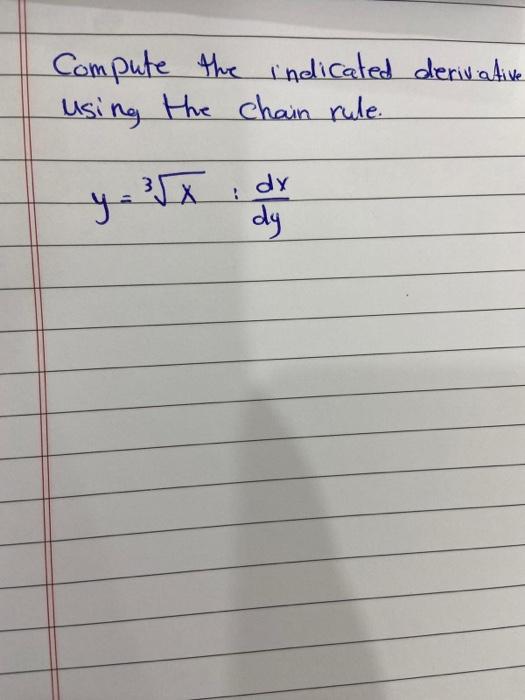 Compute the indicated derivative
using the chain rule.
y = ³√x ; dx/dy